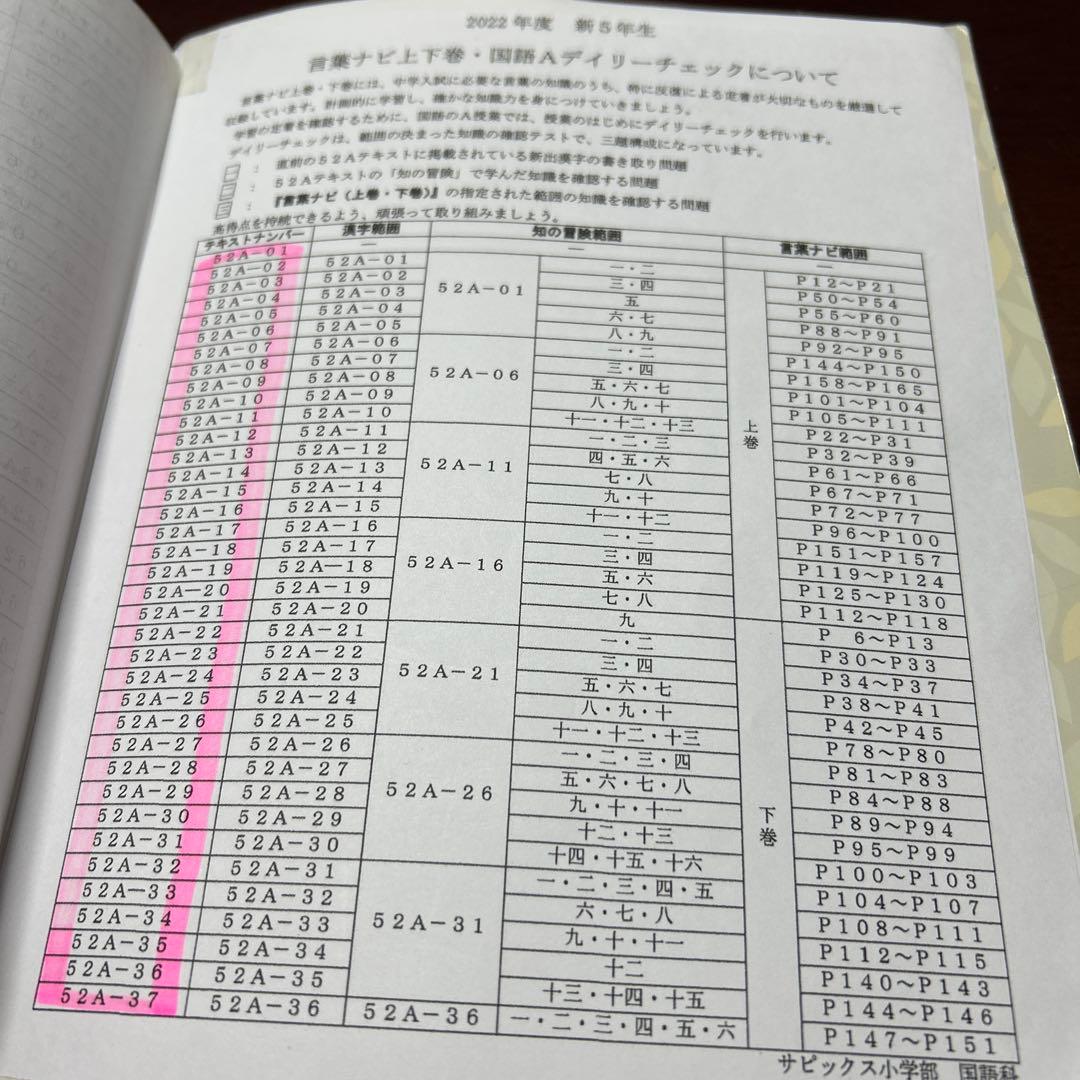 2022年度 新5年生
言葉ナビ上下巻・国語Aデイリーチェックについて
言葉ナビ上巻・下巻には、中学入試に必要な言葉の知識のうち、特に反復による定着が大切なものを厳選して
収録しています。計画的に学習し、確かな知識力を身につけていきましょう。
学習の定着を確認するために、国語のA授業では、授業のはじめにデイリーチェックを行います。
デイリーチェックは、範囲の決まった知識の確認テストで、三題構成になっています。
一 : 直前の52Aテキストに掲載されている新出漢字の書き取り問題
二 : 52Aテキストの「知の冒険」で学んだ知識を確認する問題
三 : 『言葉ナビ（上巻・下巻）』の指定された範囲の知識を確認する問題
高得点を持続できるよう、頑張って取り組みましょう。
テキストナンバー 漢字範囲 知の冒険範囲 言葉ナビ範囲
52A-01 ― ― ―
52A-02 52A-01 52A-01 一・二 上巻 P12～P21
52A-03 52A-02 三・四 P50～P54
52A-04 52A-03 五 P55～P60
52A-05 52A-04 六・七 P88～P91
52A-06 52A-05 八・九 P92～P95
52A-07 52A-06 52A-06 一・二 P144～P150
52A-08 52A-07 三・四 P158～P165
52A-09 52A-08 五・六・七 P101～P104
52A-10 52A-09 八・九・十 P105～P111
52A-11 52A-10 十一・十二・十三 P22～P31
52A-12 52A-11 52A-11 一・二・三 P32～P39
52A-13 52A-12 四・五・六 P61～P66
52A-14 52A-13 七・八 P67～P71
52A-15 52A-14 九・十 P72～P77
52A-16 52A-15 十一・十二 P96～P100
52A-17 52A-16 52A-16 一・二 P151～P157
52A-18 52A-17 三・四 P119～P124
52A-19 52A-18 五・六 P125～P130
52A-20 52A-19 七・八 P112～P118
52A-21 52A-20 九 下巻 P 6～P13
52A-22 52A-21 52A-21 一・二 P30～P33
52A-23 52A-22 三・四 P34～P37
52A-24 52A-23 五・六・七 P38～P41
52A-25 52A-24 八・九・十 P42～P45
52A-26 52A-25 十一・十二・十三 P78～P80
52A-27 52A-26 52A-26 一・二・三・四 P81～P83
52A-28 52A-27 五・六・七・八 P84～P88
52A-29 52A-28 九・十・十一 P89～P94
52A-30 52A-29 十二・十三 P95～P99
52A-31 52A-30 十四・十五・十六 P100～P103
52A-32 52A-31 52A-31 一・二・三・四・五 P104～P107
52A-33 52A-32 六・七・八 P108～P111
52A-34 52A-33 九・十・十一 P112～P115
52A-35 52A-34 十二 P140～P143
52A-36 52A-35 十三・十四・十五 P144～P146
52A-37 52A-36 52A-36 一・二・三・四・五・六 P147～P151
サピックス小学部 国語科